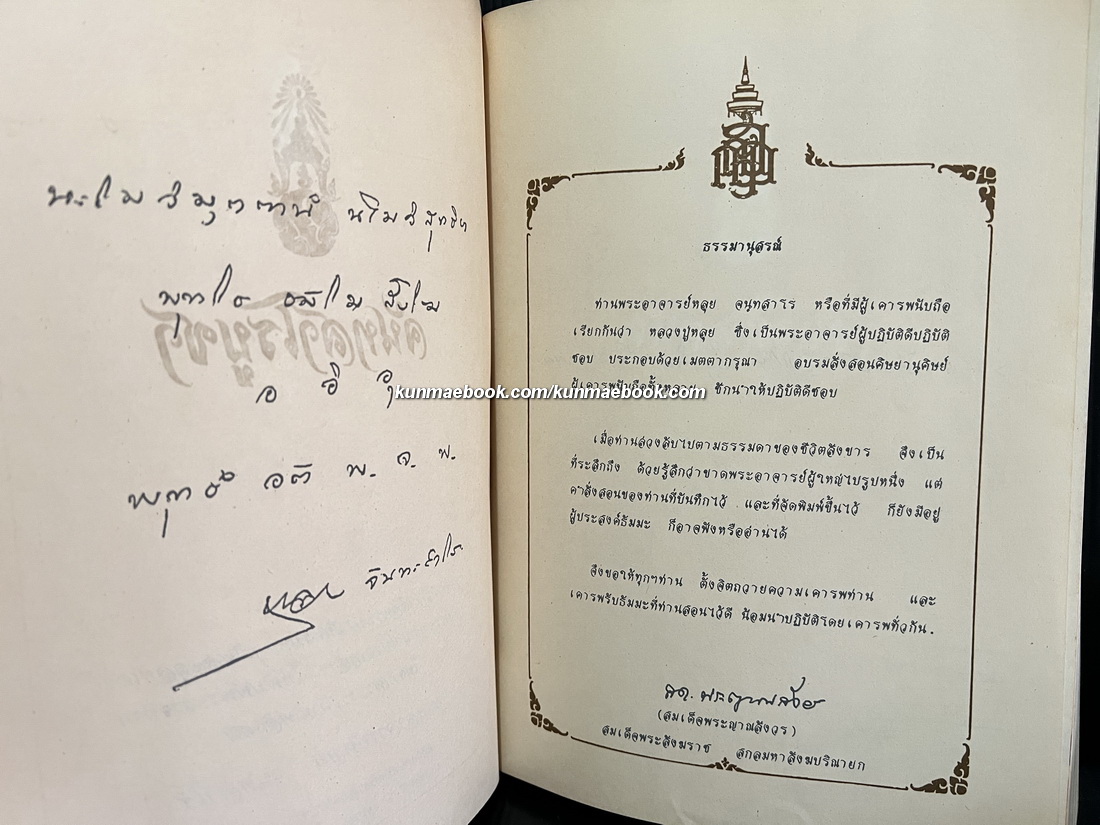 นะโม วิมุตตานํ นโม วิ
พุทโธ ธัมโม สังโฆ
อ อิ อุ
พ. จ. พ.
จันทะสาโร
จันทสาโรบูชา
kunmaebook.com/kunmaebook.com
ธรรมานุสรณ์
ท่านพระอาจารย์หลุย จนฺทสาโร หรือที่มีผู้เคารพนับถือ
เรียกกันว่า หลวงปู่หลุย ซึ่งเป็นพระอาจารย์ผู้ปฏิบัติดีปฏิบัติ
ชอบ ประกอบด้วยเมตตากรุณา อบรมสั่งสอนศิษยานุศิษย์
ผู้เคารพนับถือทั้งหลาย ชักนำให้ปฏิบัติดีชอบ
เมื่อท่านล่วงลับไปตามธรรมดาของชีวิตสังขาร จึงเป็น
ที่ระลึกถึง ด้วยรู้สึกว่าขาดพระอาจารย์ผู้ใหญ่ไปรูปหนึ่ง แต่
คำสั่งสอนของท่านที่บันทึกไว้ และที่จัดพิมพ์ขึ้นไว้ ก็ยังมีอยู่
ผู้ประสงค์ธัมมะ ก็อาจฟังหรืออ่านได้
จึงขอให้ทุกๆท่าน ตั้งจิตถวายความเคารพท่าน และ
เคารพรับธัมมะที่ท่านสอนไว้ดี น้อมนำปฏิบัติโดยเคารพทั่วกัน.
(สมเด็จพระญาณสังวร)
สมเด็จพระสังฆราช สกลมหาสังฆปริณายก